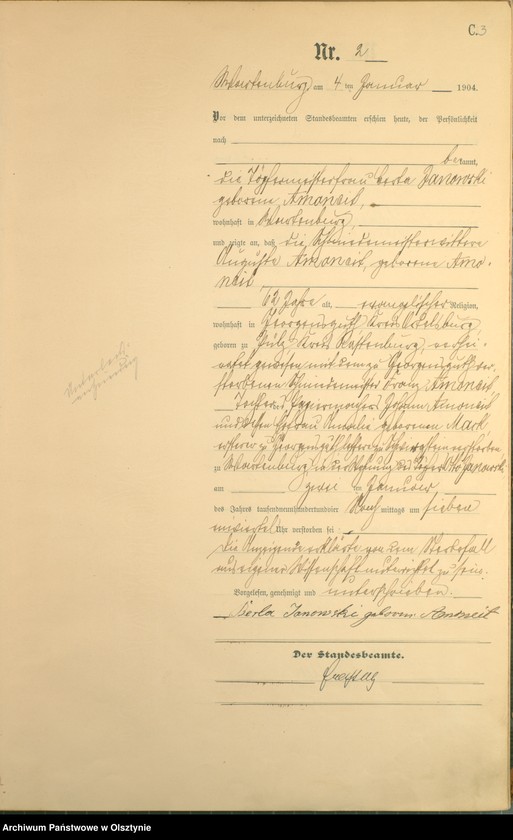 C.3
Nr. 2
Wartenburg am 4 ten Januar 1904.
Vor dem unterzeichneten Standesbeamten erschien heute, der Persönlichkeit
nach
bekannt,
die Töpfermeisterfrau Berta Janowski
geborene Amoneit,
wohnhaft in Wartenburg,
und zeigte an, daß die Schmiedemeisterwittwe
Auguste Amoneit, geborene Amo-
neit,
62 Jahre alt, evangelischer Religion,
wohnhaft in Georgensguth Kreis Ortelsburg,
geboren zu Kreis Rastenburg, verhei-
ratet gewesen mit dem zu Georgensguth ver-
storbenen Schmiedemeister Franz Amoneit
Tochter des Papiermachers Johann Amoneit
und dessen Ehefrau Amalie geborenen Mark
ersterer zu Georgensguth letztere zu verstorben
zu Wartenburg, in der Wohnung des Janowski
am zwei ten Januar
des Jahrs tausendneunhundertundvier Nachmittags um sieben
einviertel Uhr verstorben sei.
Die Anzeigende erklärte von dem Sterbefall
aus eigener Wissenschaft unterrichtet zu sein.
Vorgelesen, genehmigt und unterschrieben.
Berta Janowski geborene Amoneit
Der Standesbeamte.
Freitag
Archiwum Państwowe w Olsztynie